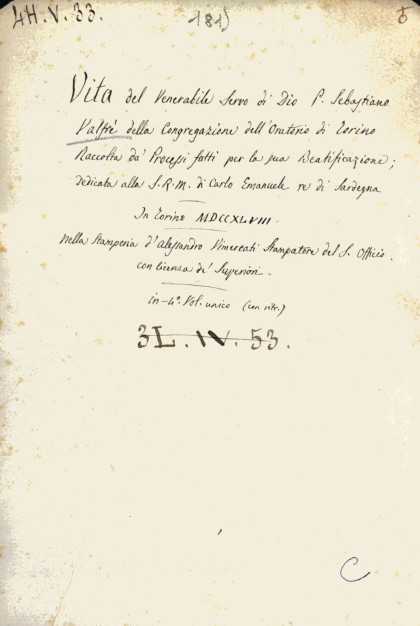 4H.V.33.
181)
Vita del Venerabile Servo di Dio P. Sebastiano
Valfrè della Congregazione dell'Oratorio di Torino
Raccolta da' Processi fatti per la sua Beatificazione;
dedicata alla S.R.M. di Carlo Emanuele re di Sardegna
In Torino MDCCXLVIII
nella Stamperia d'Alessandro Vimercati Stampatore del S. Officio.
con licenza de' Superiori.
in-4º. Vol. unico (con ritr.)
3L.IV.53.
C